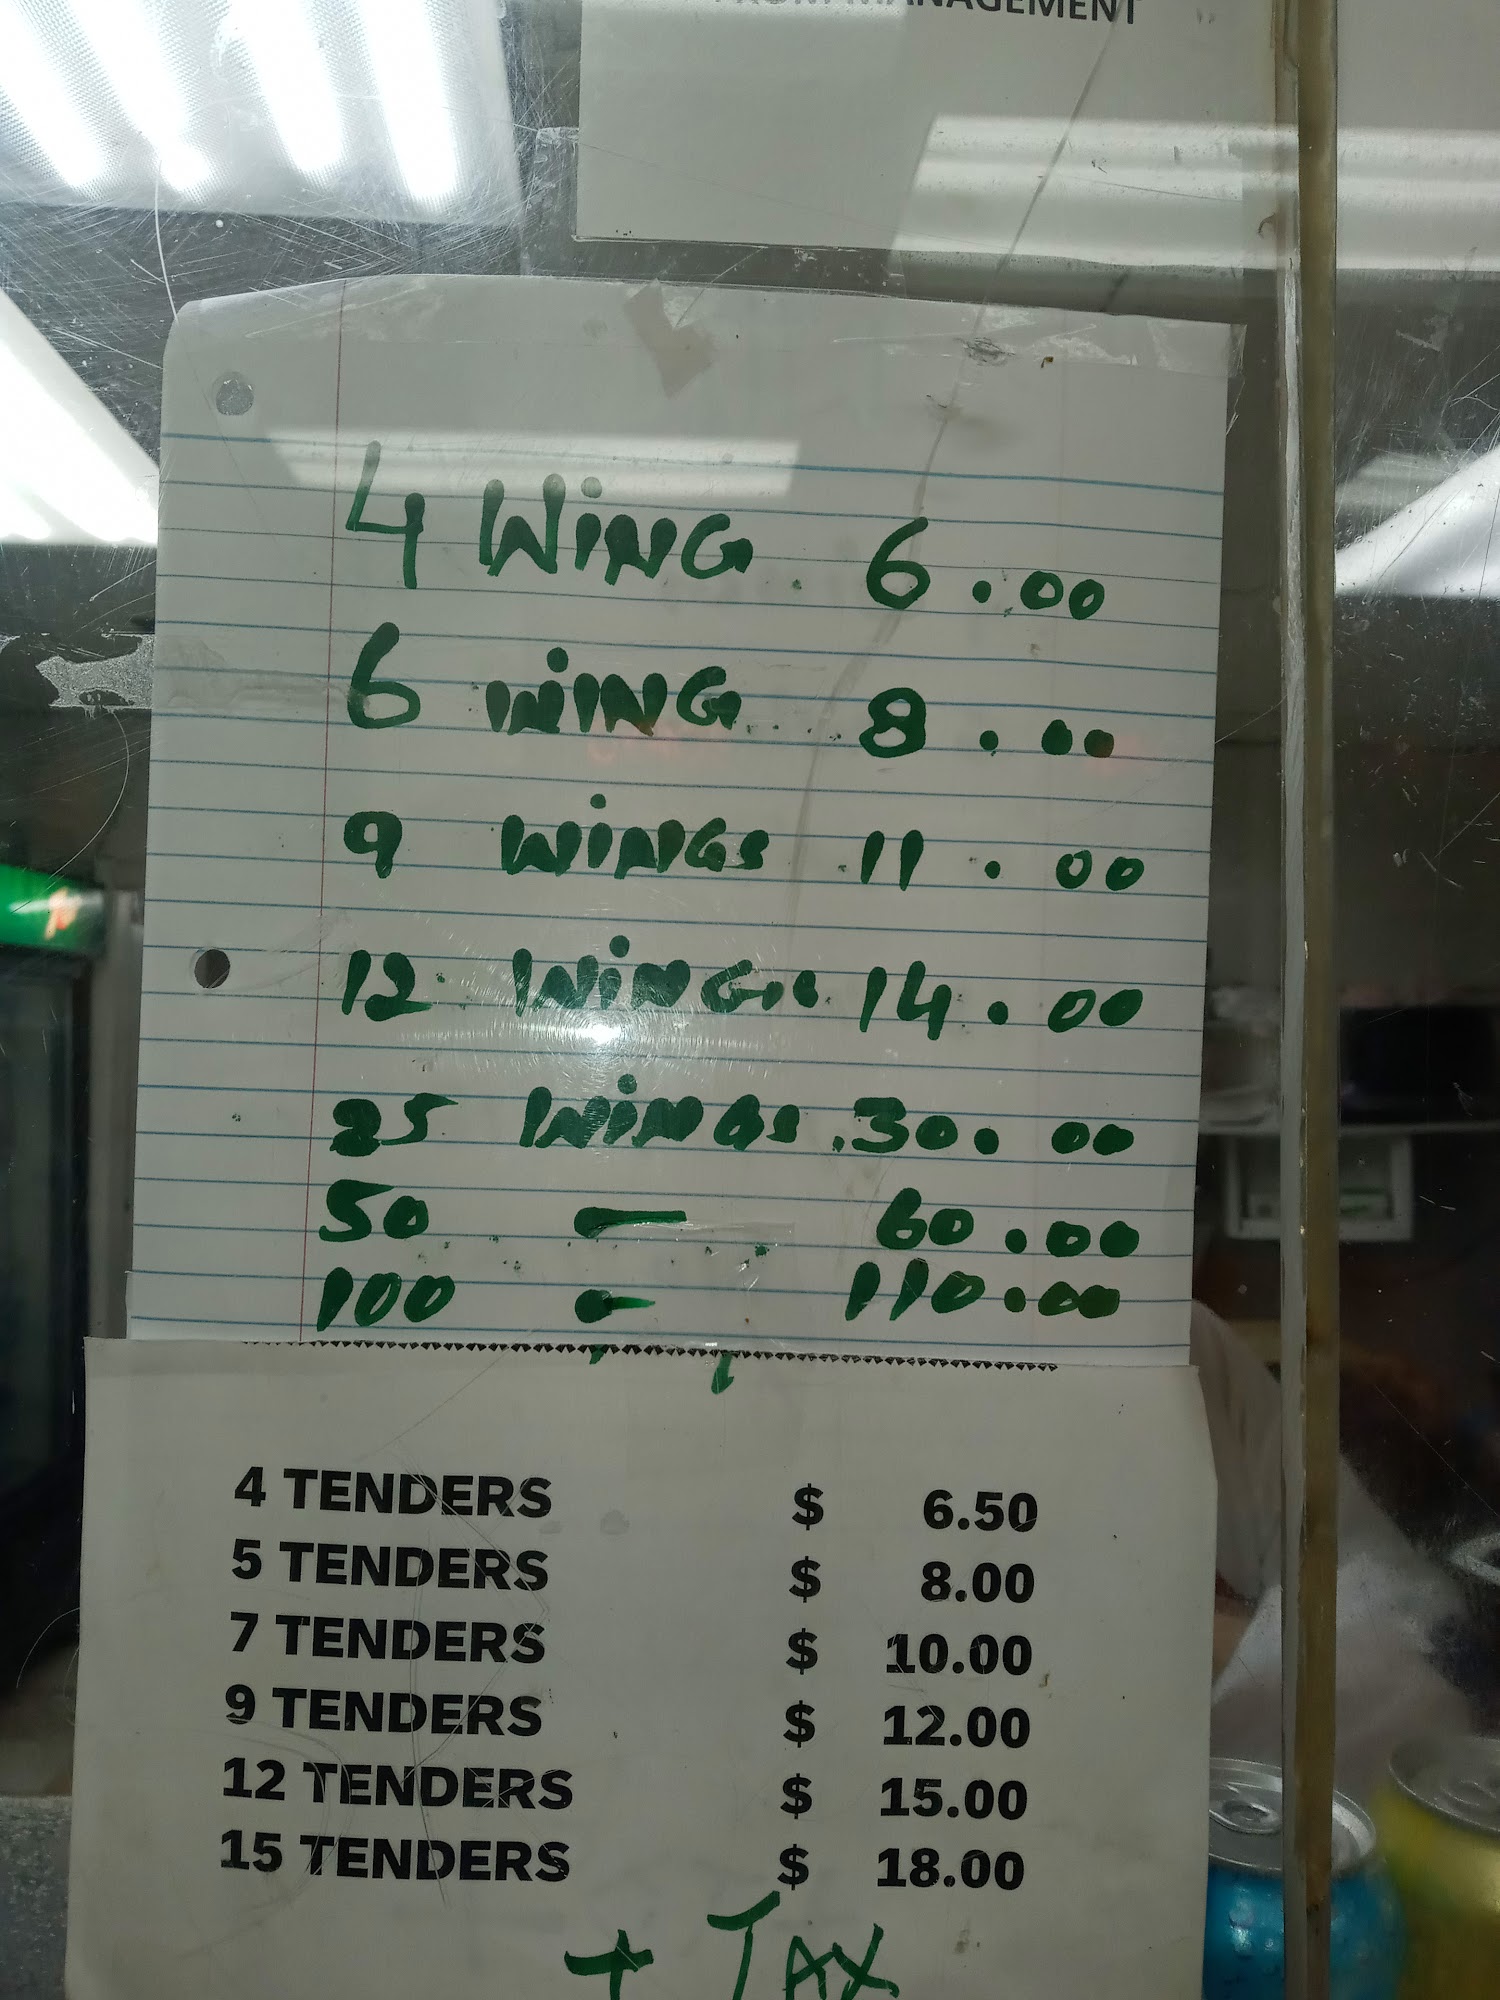 MANAGEMENT
4 WiNG 6.00
6 WiNG 8.00
9 WiNGs 11.00
12 WiNGs 14.00
25 WiNGs 30.00
50 — 60.00
100 - 110.00
4 TENDERS $ 6.50
5 TENDERS $ 8.00
7 TENDERS $ 10.00
9 TENDERS $ 12.00
12 TENDERS $ 15.00
15 TENDERS $ 18.00
+ TAX